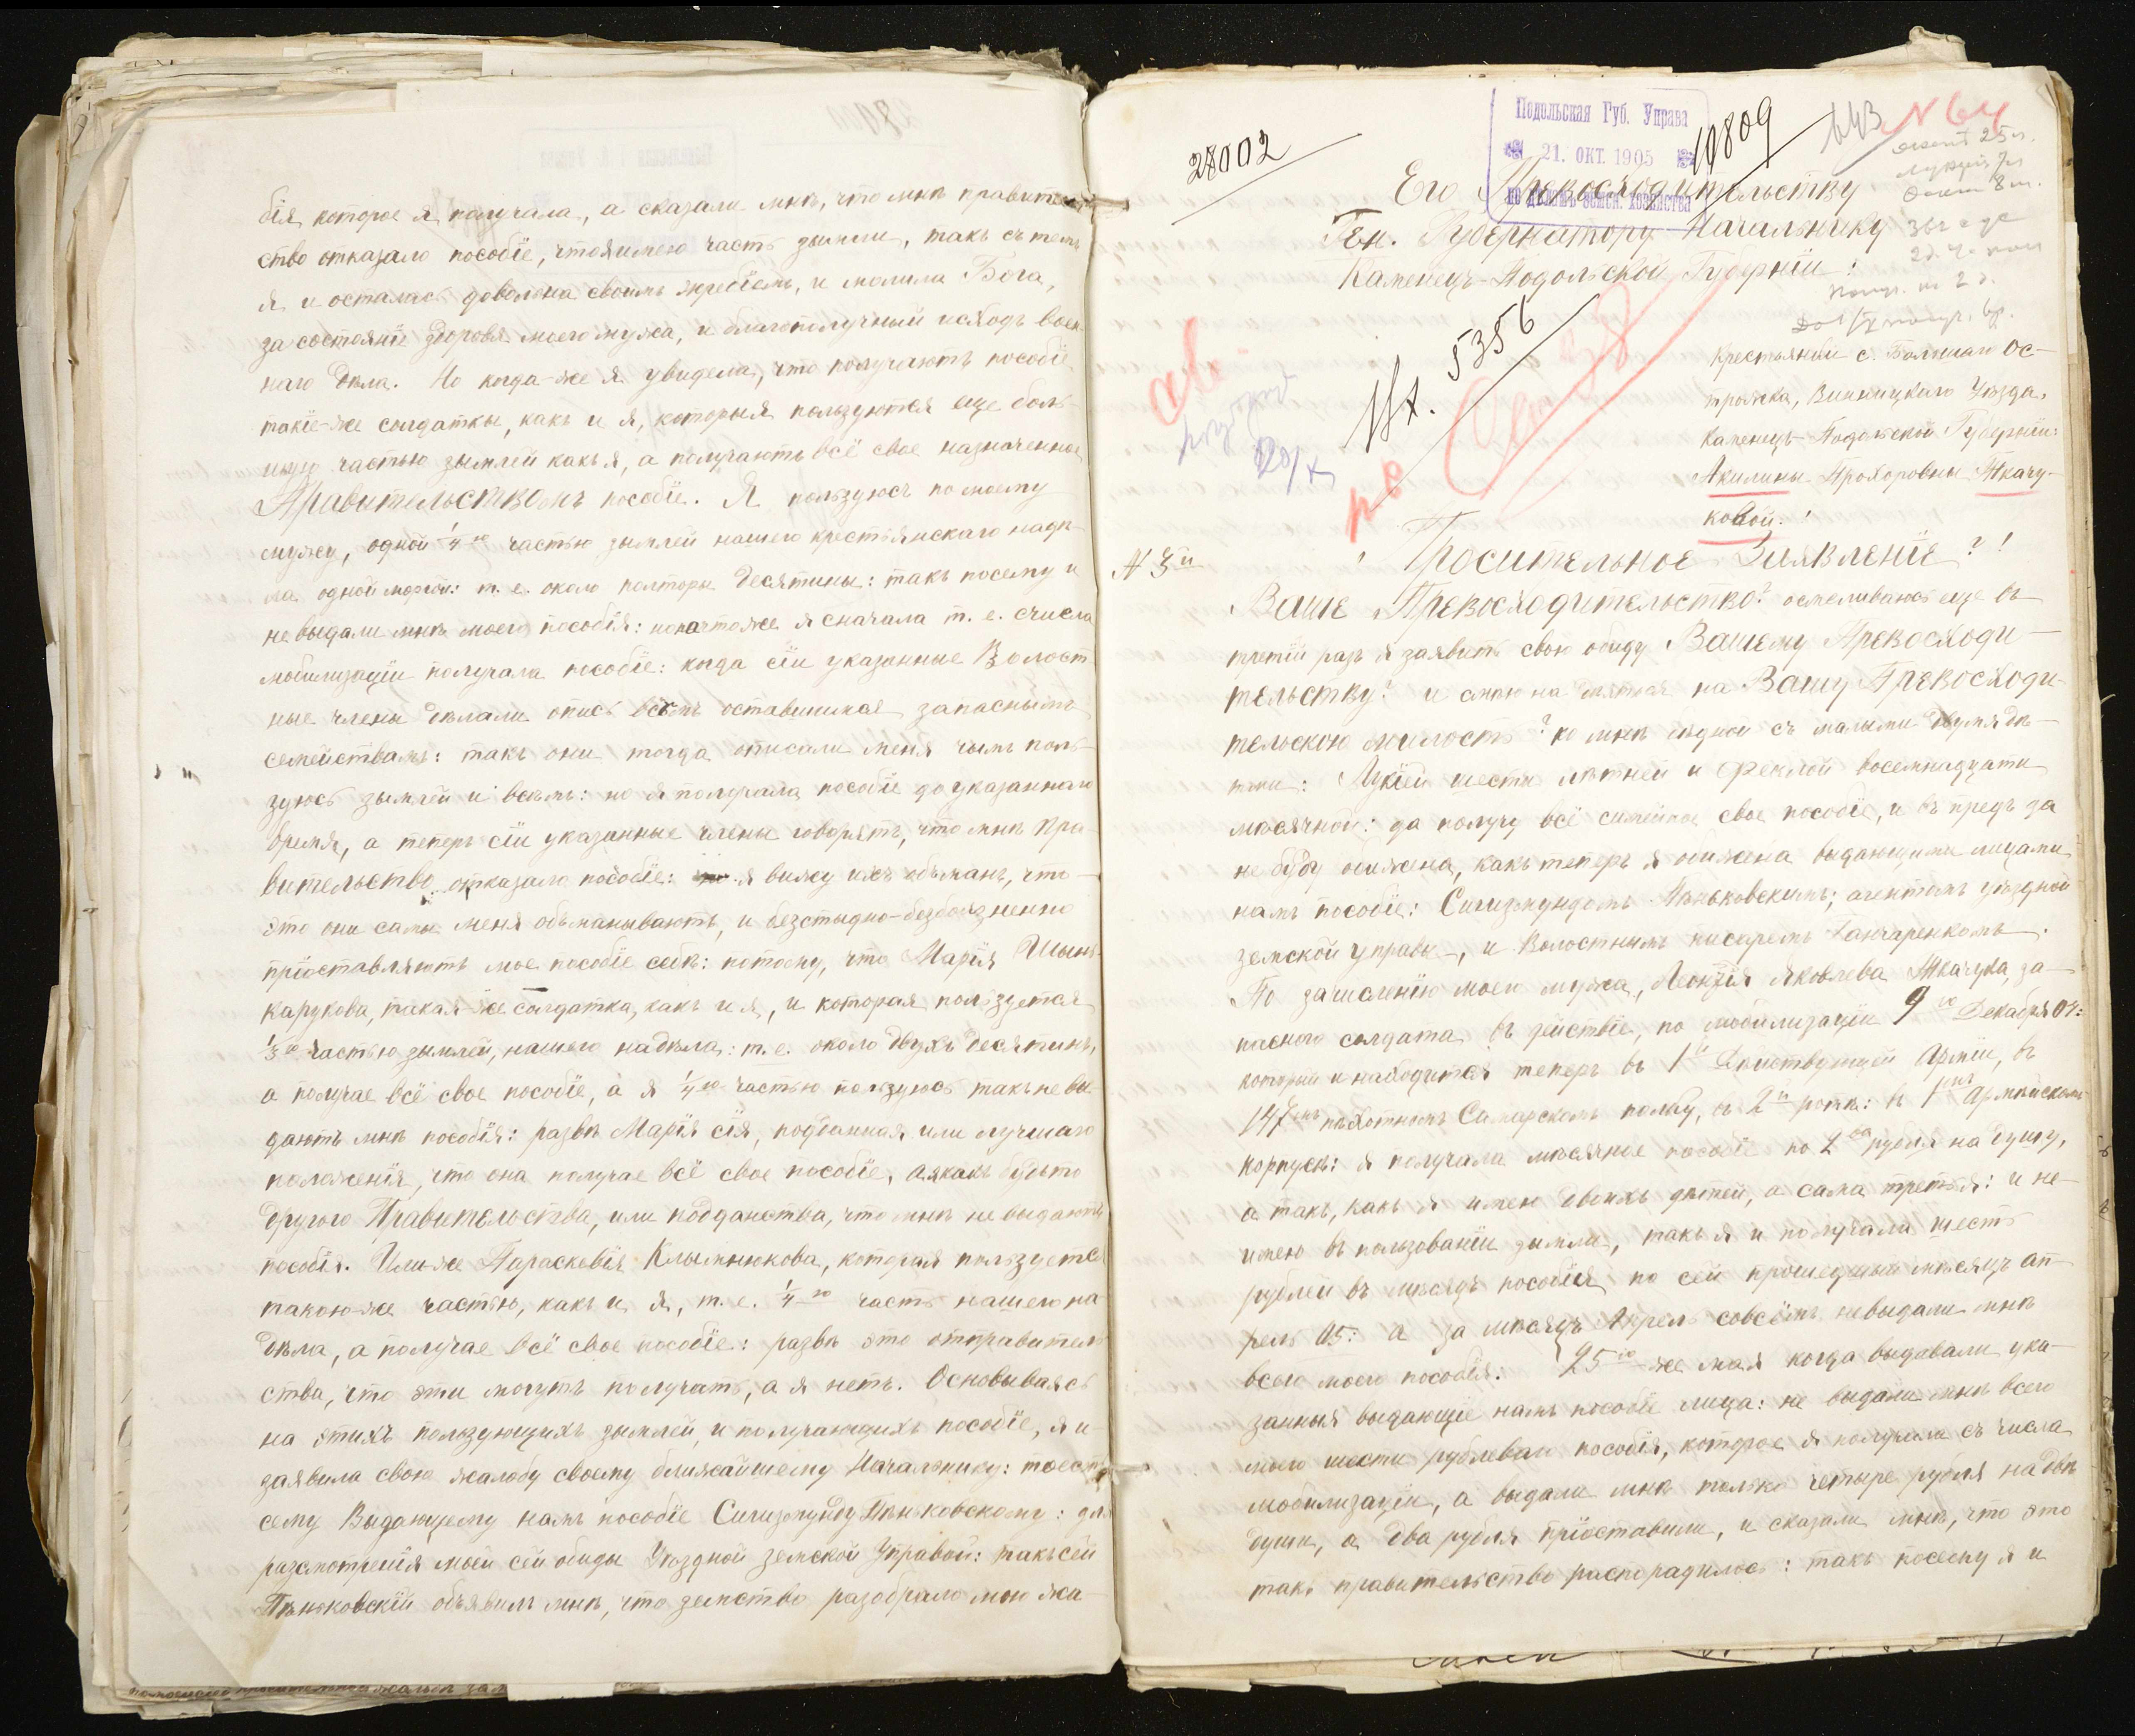 бія которое я получала, а сказали мнѣ, что мнѣ правитель
ство отказало пособіе, что я имею часть зымли, такъ съ темъ
я и осталась довольна своимъ жребіемъ, и молила Бога,
за состояніе здоровя моего мужа, и благополучный исходъ воен-
наго дѣла. Но когда-же я увидела, что получаютъ пособіе
такіе-же солдатки, какъ и я, которыя пользуются еще боль-
шую частью зымлей какъ я, а получаютъ всё свое назначенное
Правительствомъ пособіе. Я пользуюсъ по моему
мужу, одной ¼ю частью зымлей нашего крестьянскаго надѣ-
ла одной моргой: т. е. около полторы десятины: такъ посему и
не выдали мнѣ моего пособія: но на что же я сначала т. е. с числа
мобилизаціи получала пособіе: когда сіи указанные Волост
ные члены дѣлали опись всѣмъ оставшимся запаснымъ
семействамъ: такъ они тогда описали меня чымъ поль-
зуюсь зымлей и всѣмъ: но я получала пособіе до указаннаго
время, а теперь сіи указанные члены говорятъ, что мнѣ Пра-
вительство отказало пособіе: я вижу ихъ обьманъ, что
это они самы меня обьманываютъ, и безстыдно-безбоязненно
пріоставляютъ мое пособіе себѣ: потому, что Марія Шынь-
карукова, такая-же солдатка, какъ и я, и которая пользуется
⅓ю частью зымлей, нашего надѣла: т. е. около двухъ десятинъ,
а получае всё свое пособіе, а я ¼ю частью пользуюсь такъ не вы
даютъ мнѣ пособія: развѣ Марія сія, подданная или лучшаго
положенія, что она получае всё свое пособіе, а я какъ будьто
другого Правительства, или подданства, что мнѣ не выдаютъ
пособія. Или-же Параскевія Клымнюкова, которая пользуется
такою-же частью, какъ и я, т. е. ¼ю часть нашего на
дѣла, а получае всё свое пособіе: развѣ это отправитель
ства, что эти могутъ получать, а я нетъ. Основываясь
на этихъ пользующихъ зымлей, и получающихъ пособіе, я и
заявила свою жалобу своему ближайшему Начальнику: тоесть
сему Выдающему намъ пособіе Сигизмунду Пѣньковскому: для
разсмотренія моей сей обиды Уѣздной земской Управой: такъ сей
Пѣньковскій обьявилъ мнѣ, что земство разобрало мою жа-
28002
Подольская Губ. Управа
21. ОКТ. 1905
по дѣламъ земск. хозяйства
10809
643
N 64
Его Превосходительству
Ген. Губернатору Начальнику
Каменецъ-Подольской Губерніи:
Вх. 5356
Крестьянки с. Большаго Ос-
трожка, Винницкаго Уѣзда,
Каменецъ-Подольской Губерніи:
Акилины Прохоровны Ткачу-
ковой.!
N 3й
Просительное Заявленіе?!
Ваше Превосходительство? осмеливаюсь еще въ
третій разъ я заявить свою обиду Вашему Превосходи-
тельству? и на Вашу Превосходи-
тельскою милость? ко мнѣ бедной съ малыми двумя дѣ-
тми: Лукіей шести лѣтней и Феклой восемнадцати
мѣсячной: да получу всё семейное свое пособіе, и въ предъ да
не буду обижена, какъ теперъ я обижена выдающими лицами
намъ пособіе: Сигизмундомъ Пѣньковскимъ; агентомъ уѣздной
земской управы, и Волостнымъ писаремъ Ганчаренкомъ.
По зачисленію моего мужа, Леонтія Яковлева Ткачука, за-
пасного солдата въ действіе, по мобилизаціи 9го Декабря 04:
который и находится теперъ въ 1й Дѣйствующей Арміи, въ
147мъ пѣхотномъ Самарскомъ полку, въ 2й ротѣ: въ 1мъ Армейскомъ
корпусѣ: я получала мѣсячное пособіе по 2ва рубля на душу,
а такъ, какъ я имею двоихъ дѣтей, а сама третья: и не-
имею въ пользованіи зымли, такъ я и получала шесть
рублей въ мѣсяцъ пособія по сей прошедшый мѣсяцъ ап-
рель 05: а за мѣсяцъ Апрель совсѣмъ невыдали мнѣ
всего моего пособія: 25го же мая когда выдавали ука-
занныя выдающіе намъ пособіе лица: не выдали мнѣ всего
моего шести рублеваго пособія, которое я получала съ числа
мобилизаціи, а выдали мнѣ только четыре рубля на двѣ
души, а два рубля пріоставили, и сказали мнѣ, что это
такъ правительство распорадилось: такъ посему я и